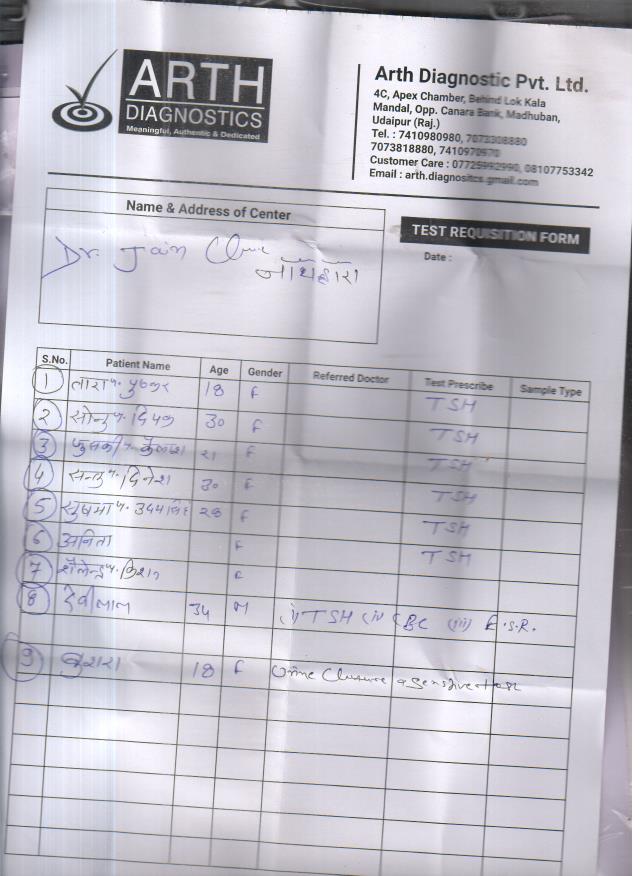 ARTH
DIAGNOSTICS
Meaningful, Authentic & Dedicated
Arth Diagnostic Pvt. Ltd.
4C, Apex Chamber, Behind Lok Kala
Mandal, Opp. Canara Bank, Madhuban,
Udaipur (Raj.)
Tel. : 7410980980, 7073308880
7073818880, 7410970970
Customer Care : 07725992990, 08107753342
Email : arth.diagnositcs gmail.com
Name & Address of Center
TEST REQUISITION FORM
Date :
Dr. Jain
S.No. Patient Name Age Gender Referred Doctor Test Prescribe Sample Type
1 तारा 18 F TSH
2 30 F TSH
3 21 F TSH
4 दिनेश 30 F TSH
5 सुषमा 28 F TSH
6 अनिता F TSH
7 F
8 देवीलाल 34 M (i) TSH (ii) CBC (iii) E.S.R.
9 18 F Urine